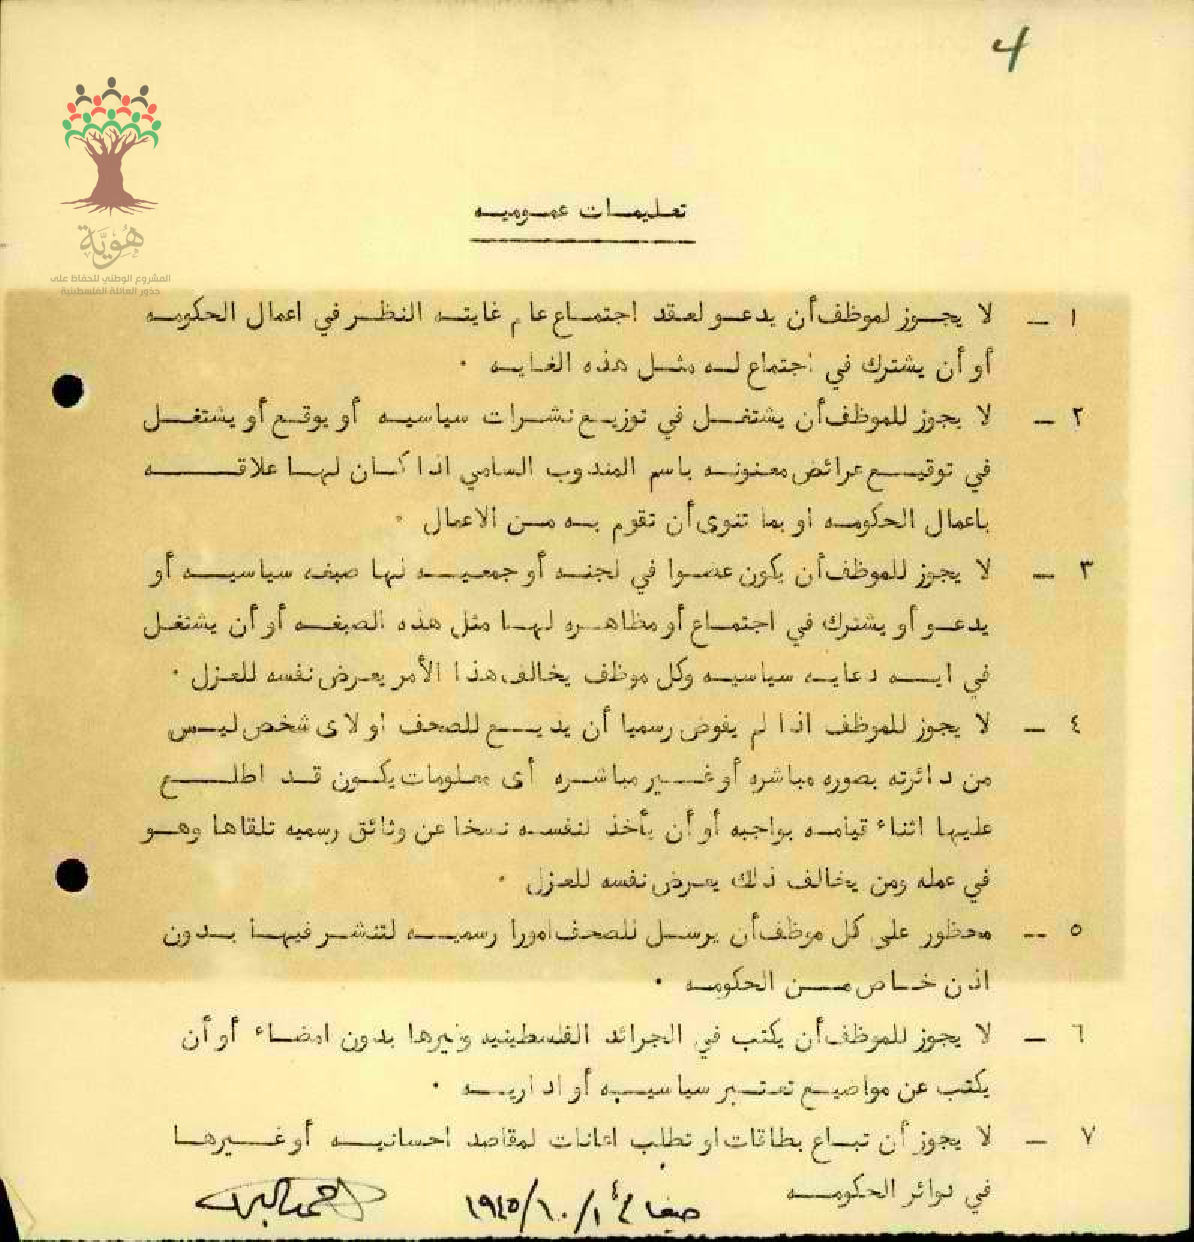 4
هُوِيَّة
المشروع الوطني للحفاظ على
جذور العائلة الفلسطينية
تعليمات عموميه
١ ــ لا يجوز لموظف أن يدعو لعقد اجتماع عام غايته النظر في اعمال الحكومه
أو أن يشترك في اجتماع له مثل هذه الغايه .
٢ ــ لا يجوز للموظف أن يشتغل في توزيع نشرات سياسيه أو يوقع أو يشتغل
في توقيع عرائض معنونه باسم المندوب السامي اذا كان لها علاقه
باعمال الحكومه او بما تنوى أن تقوم به من الاعمال .
٣ ــ لا يجوز للموظف أن يكون عضوا في لجنه أو جمعيه لها صبغه سياسيه أو
يدعو أو يشترك في اجتماع أو مظاهره لها مثل هذه الصبغه أو أن يشتغل
في ايه دعايه سياسيه وكل موظف يخالف هذا الأمر يعرض نفسه للعزل .
٤ ــ لا يجوز للموظف اذا لم يفوض رسميا أن يذيع للصحف او لاى شخص ليس
من دائرته بصوره مباشره أو غير مباشره أى معلومات يكون قد اطلع
عليها اثناء قيامه بواجبه أو أن يأخذ لنفسه نسخا عن وثائق رسميه تلقاها وهو
في عمله ومن يخالف ذلك يعرض نفسه للعزل .
٥ ــ محظور على كل موظف أن يرسل للصحف امورا رسميه لتنشر فيها بدون
اذن خاص من الحكومه .
٦ ــ لا يجوز للموظف أن يكتب في الجرائد الفلسطينيه وغيرها بدون امضاء أو أن
يكتب عن مواضيع تعتبر سياسيه أو اداريه .
٧ ــ لا يجوز أن تباع بطاقات او تطلب اعانات لمقاصد احسانيه أو غيرها
في دوائر الحكومه
١٩٤٥/١٠/١